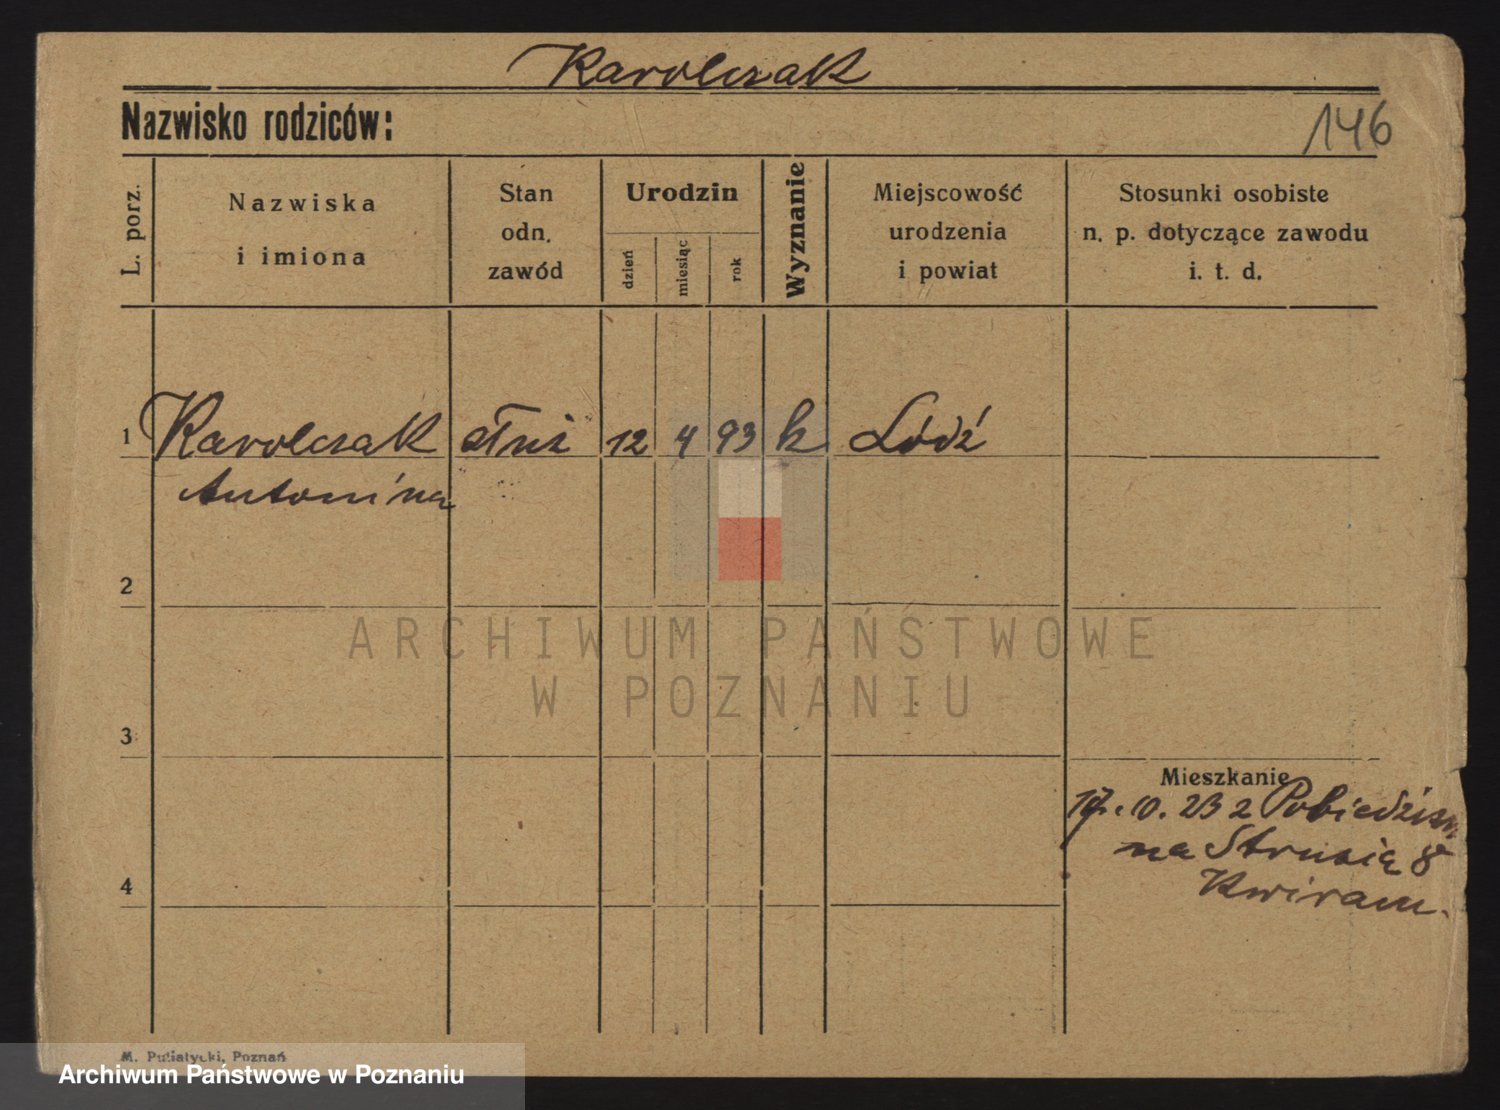 Karolczak
Nazwisko rodziców:
146
L. porz.
Nazwiska
i imiona
Stan
odn.
zawód
Urodzin
dzień
miesiąc
rok
Wyznanie
Miejscowość
urodzenia
i powiat
Stosunki osobiste
n. p. dotyczące zawodu
i. t. d.
1 Karolczak służ 12 4 93 k Łódź
Antonina
2
ARCHIWUM PAŃSTWOWE
W POZNANIU
3
Mieszkanie
17. 10. 23 z
na Strusia 8
4
M. Putiatycki, Poznań
Archiwum Państwowe w Poznaniu